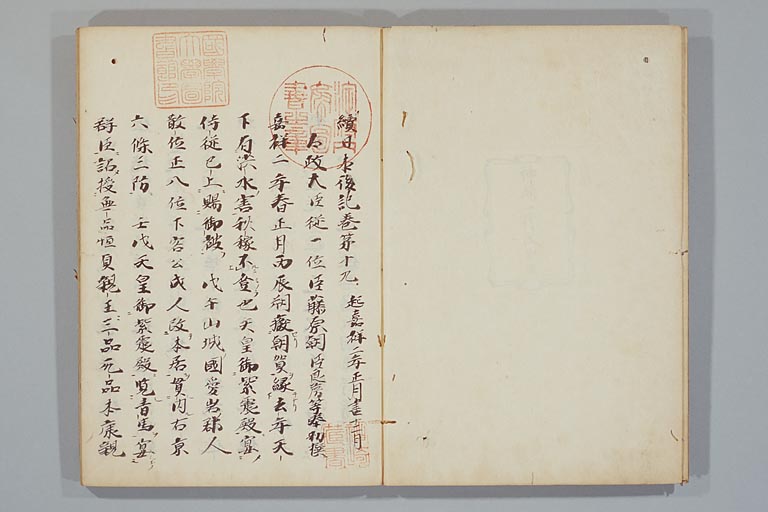 續日本後紀卷第十九 起嘉祥二年正月盡十二月
太政大臣從一位臣藤原朝臣良房等奉勅撰
嘉祥二年春正月丙辰朔癈朝賀縁去年天
下有洪水害秋稼不登也天皇御紫宸殿宴
侍從已上賜御被 戊午山城國愛宕郡人
散位正八位下 公成人改本居貫附右京
六條三防 壬戌天皇御紫宸殿覧青馬宴
群臣詔授無品恒貞親王三品 品本康親
國學院大學圖書館印